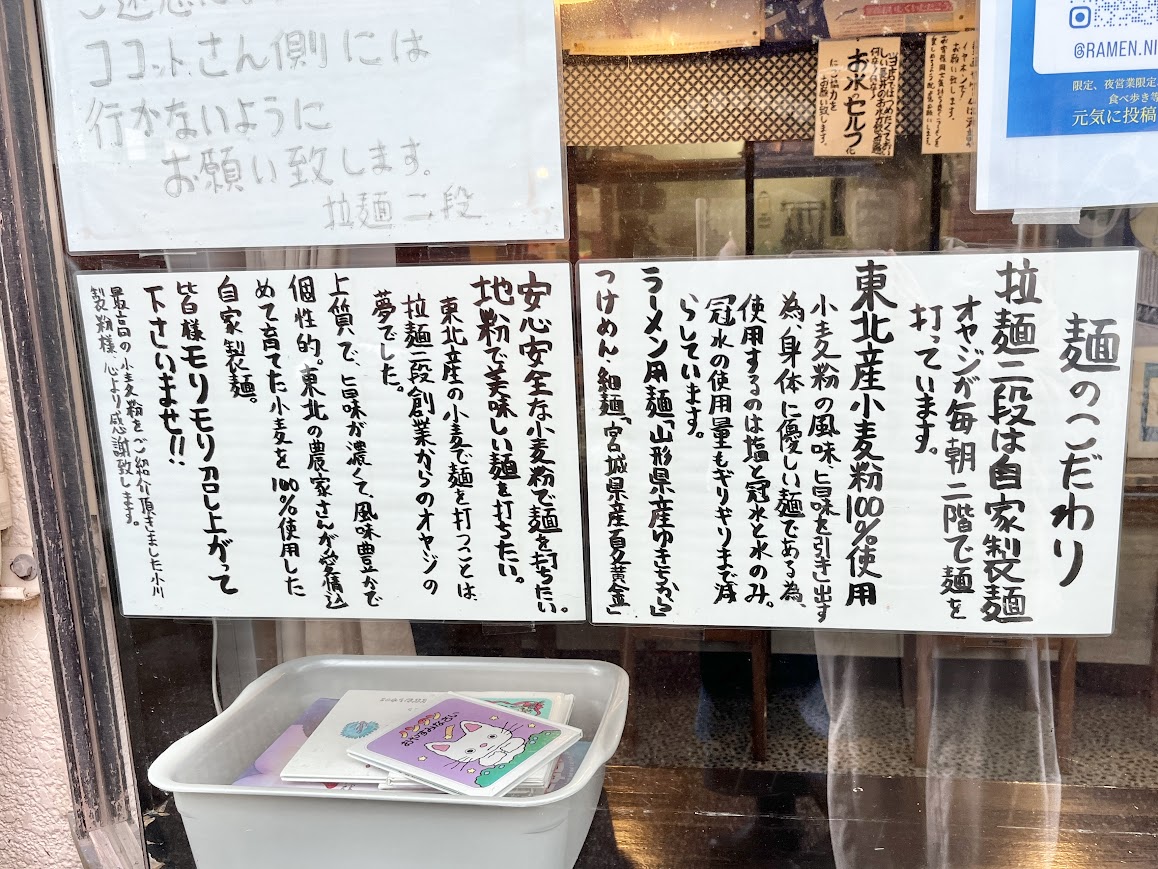 ココットさん側には
行かないように
お願い致します。
拉麺二段
お水のセルフ化
にご協力を
お願い致します。
@RAMEN.NI
限定、夜営業限定
食べ歩き等
元気に投稿
麺のこだわり
拉麺二段は自家製麺
オヤジが毎朝二階で麺を
打っています。
東北産小麦粉100%使用
小麦粉の風味、旨味を引き出す
為、身体に優しい麺である為、
使用するのは塩と冠水と水のみ。
冠水の使用量もギリギリまで減
らしています。
ラーメン用麺「山形県産ゆきちから」
つけめん・細麺「宮城県産夏黄金」
安心安全な小麦粉で麺を打ちたい。
地粉で美味しい麺を打ちたい。
東北産の小麦で麺を打つことは、
拉麺二段創業からのオヤジの
夢でした。
上質で、旨味が濃くて、風味豊かで
個性的。東北の農家さんが愛情込
めて育てた小麦を100%使用した
自家製麺。
皆様モリモリ召し上がって
下さいませ!!
最高の小麦粉をご紹介頂きました小川
製粉様、心より感謝致します。
ノンタン
おやすみなさい